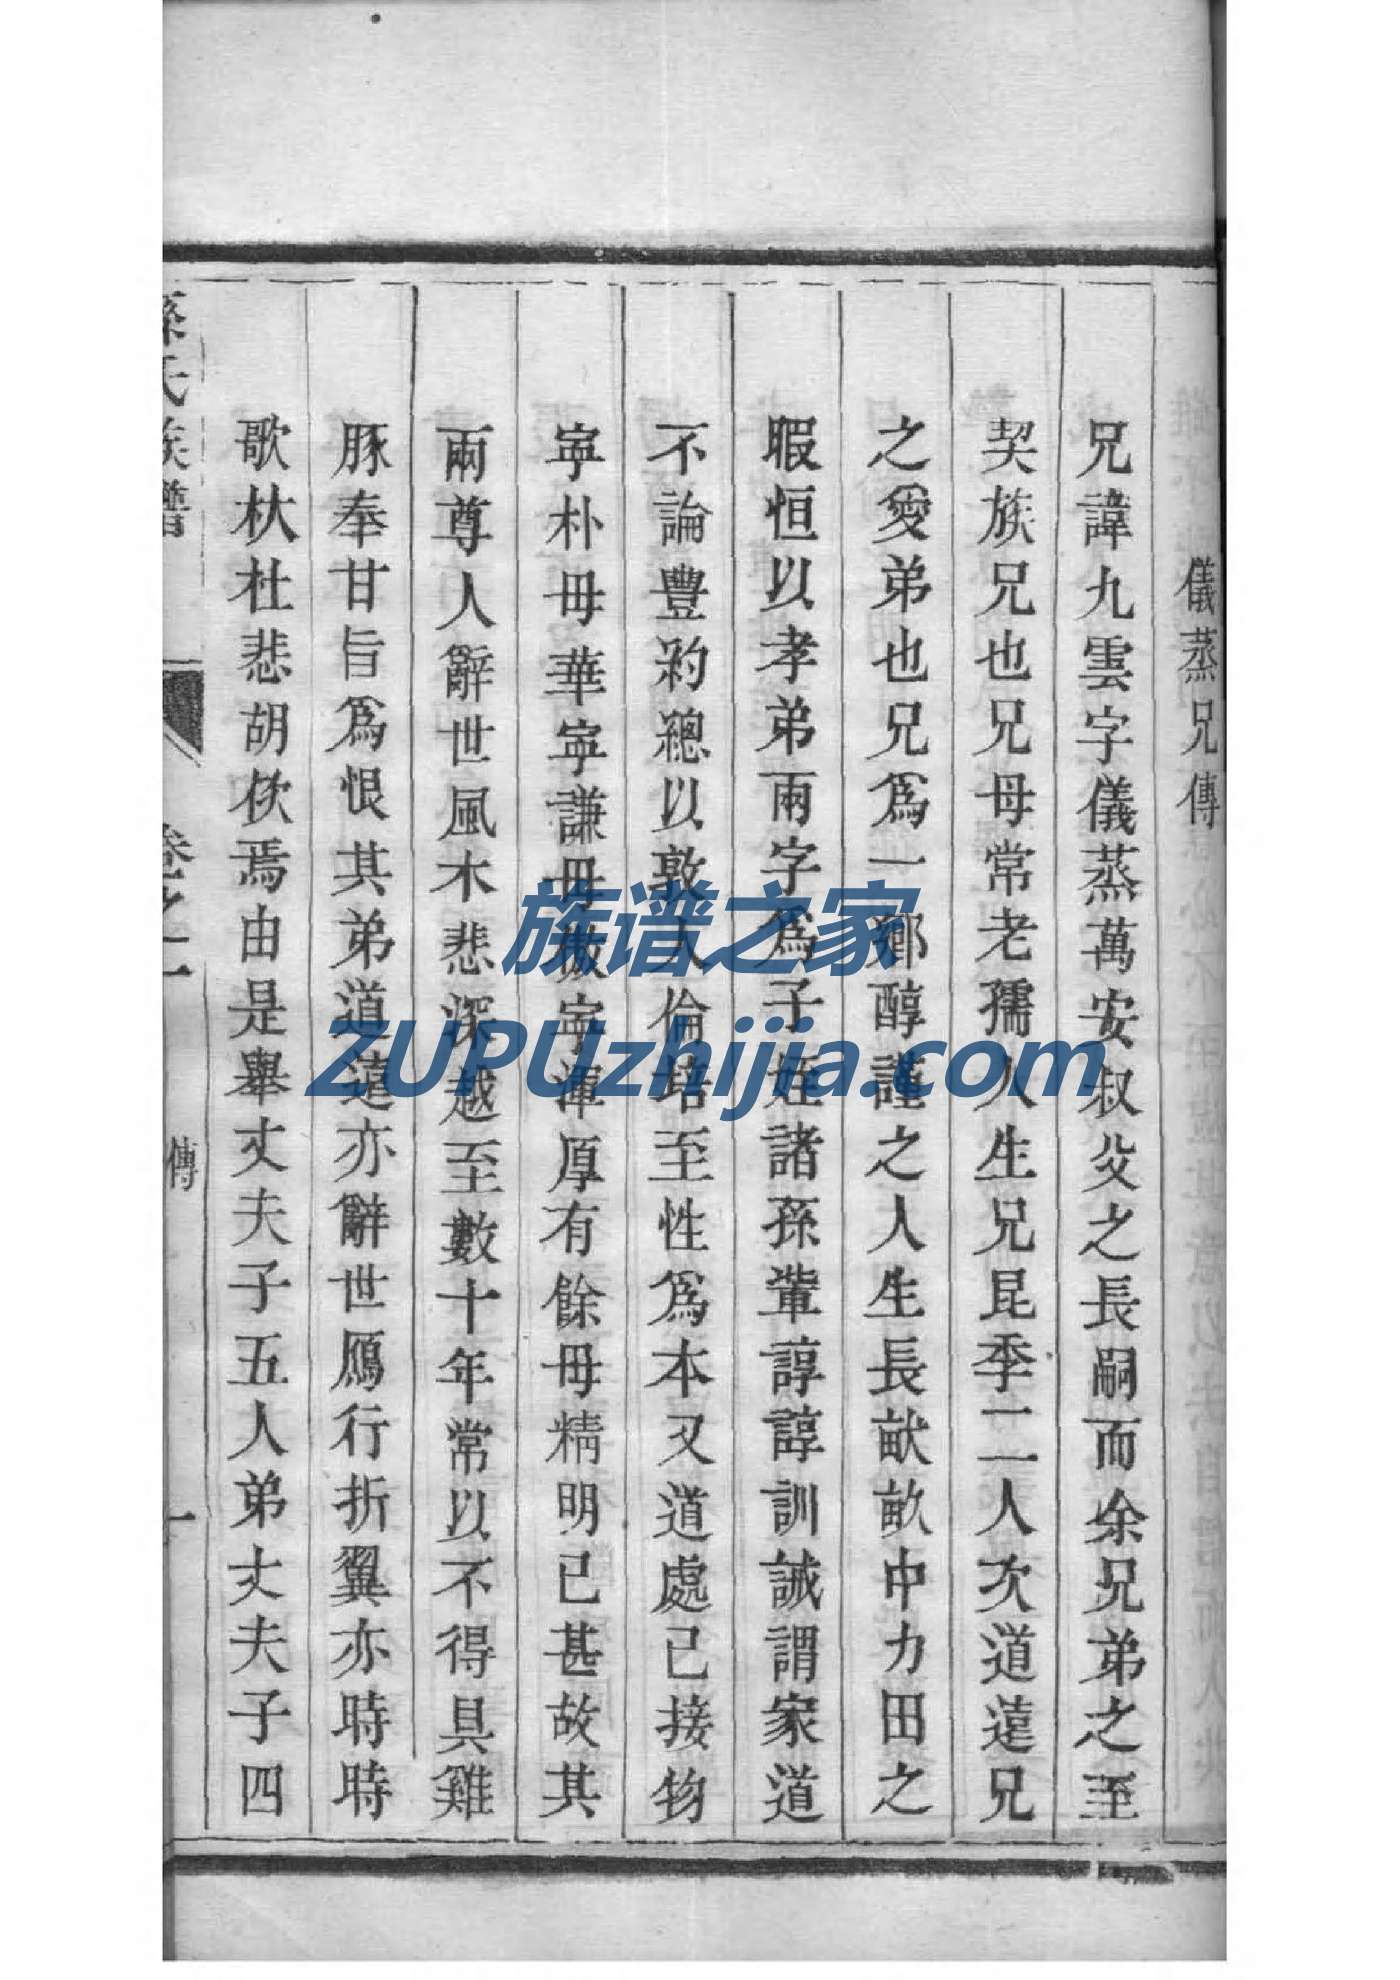 儀蒸兄傳
兄諱九雲字儀蒸萬安叔父之長嗣而余兄弟之至
契族兄也兄母常老孺人生兄昆季二人次道遠兄
之愛弟也兄為一鄉醇謹之人生長畎畝中力田之
暇恒以孝弟兩字為子姪諸孫輩諄諄訓誡謂家道
不論豐約總以敦人倫培至性為本又道處己接物
寧朴毋華寧謙毋傲寧渾厚有餘毋精明已甚故其
兩尊人辭世風木悲深越至數十年常以不得具雞
豚奉甘旨為恨其弟道遠亦辭世鴈行折翼亦時時
歌杕杜悲胡佽焉由是舉丈夫子五人弟丈夫子四
孫氏族譜
卷之一
傳
十
族谱之家
ZUPUzhijia.com